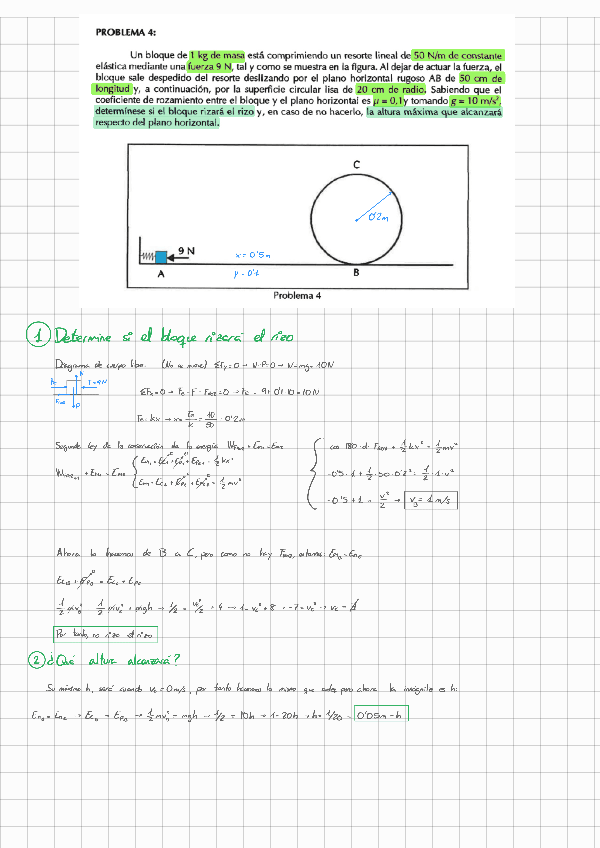 PROBLEMA 4:
Un bloque de 1 kg de masa está comprimiendo un resorte lineal de 50 N/m de constante
elástica mediante una fuerza 9 N, tal y como se muestra en la figura. Al dejar de actuar la fuerza, el
bloque sale despedido del resorte deslizando por el plano horizontal rugoso AB de 50 cm de
longitud y, a continuación, por la superficie circular lisa de 20 cm de radio. Sabiendo que el
coeficiente de rozamiento entre el bloque y el plano horizontal es μ = 0,1y tomando g = 10 m/s²,
determínese si el bloque rizará el rizo y, en caso de no hacerlo, la altura máxima que alcanzará
respecto del plano horizontal.
C
0'2m
9 N
x = 0'5m
A
μ = 0'1
B
Problema 4
1 Determine si el bloque rizará el rizo
Diagrama de cuerpo libre. (No se mueve) ΣFy=0 → N-P=0 → N=mg=10N
ΣFx=0 → Fe - F - FRoz=0 → Fe = 9+0'1·10=10N
Fe=kx → x=Fe/k=10/50=0'2m
Segunda ley de la conservación de la energía
cos 180·d·FRoz + 1/2kx² = 1/2mv²
-0'5·1+1/2·50·0'2²=1/2·1·v²
-0'5+1 = v²/2 → vB=1m/s
Ahora lo hacemos de B a C, pero como no hay FRoz, estamos: EmB=EmC
EcB + EpB = EcC + EpC
1/2mvB² = 1/2mvc² + mgh → 1/2 = vc²/2 + 4 → 1=vc²+8 → -7=vc² → vc=∄
Por tanto, no riza el rizo
2 ¿Qué altura alcanzará?
Su máximo h, será cuando vc=0m/s, por tanto hacemos lo mismo que antes pero ahora la incógnita es h:
EmB=EmC → EcB = EpC → 1/2mvB²=mgh → 1/2=10h → 1=20h → h=1/20 = 0'05m=h